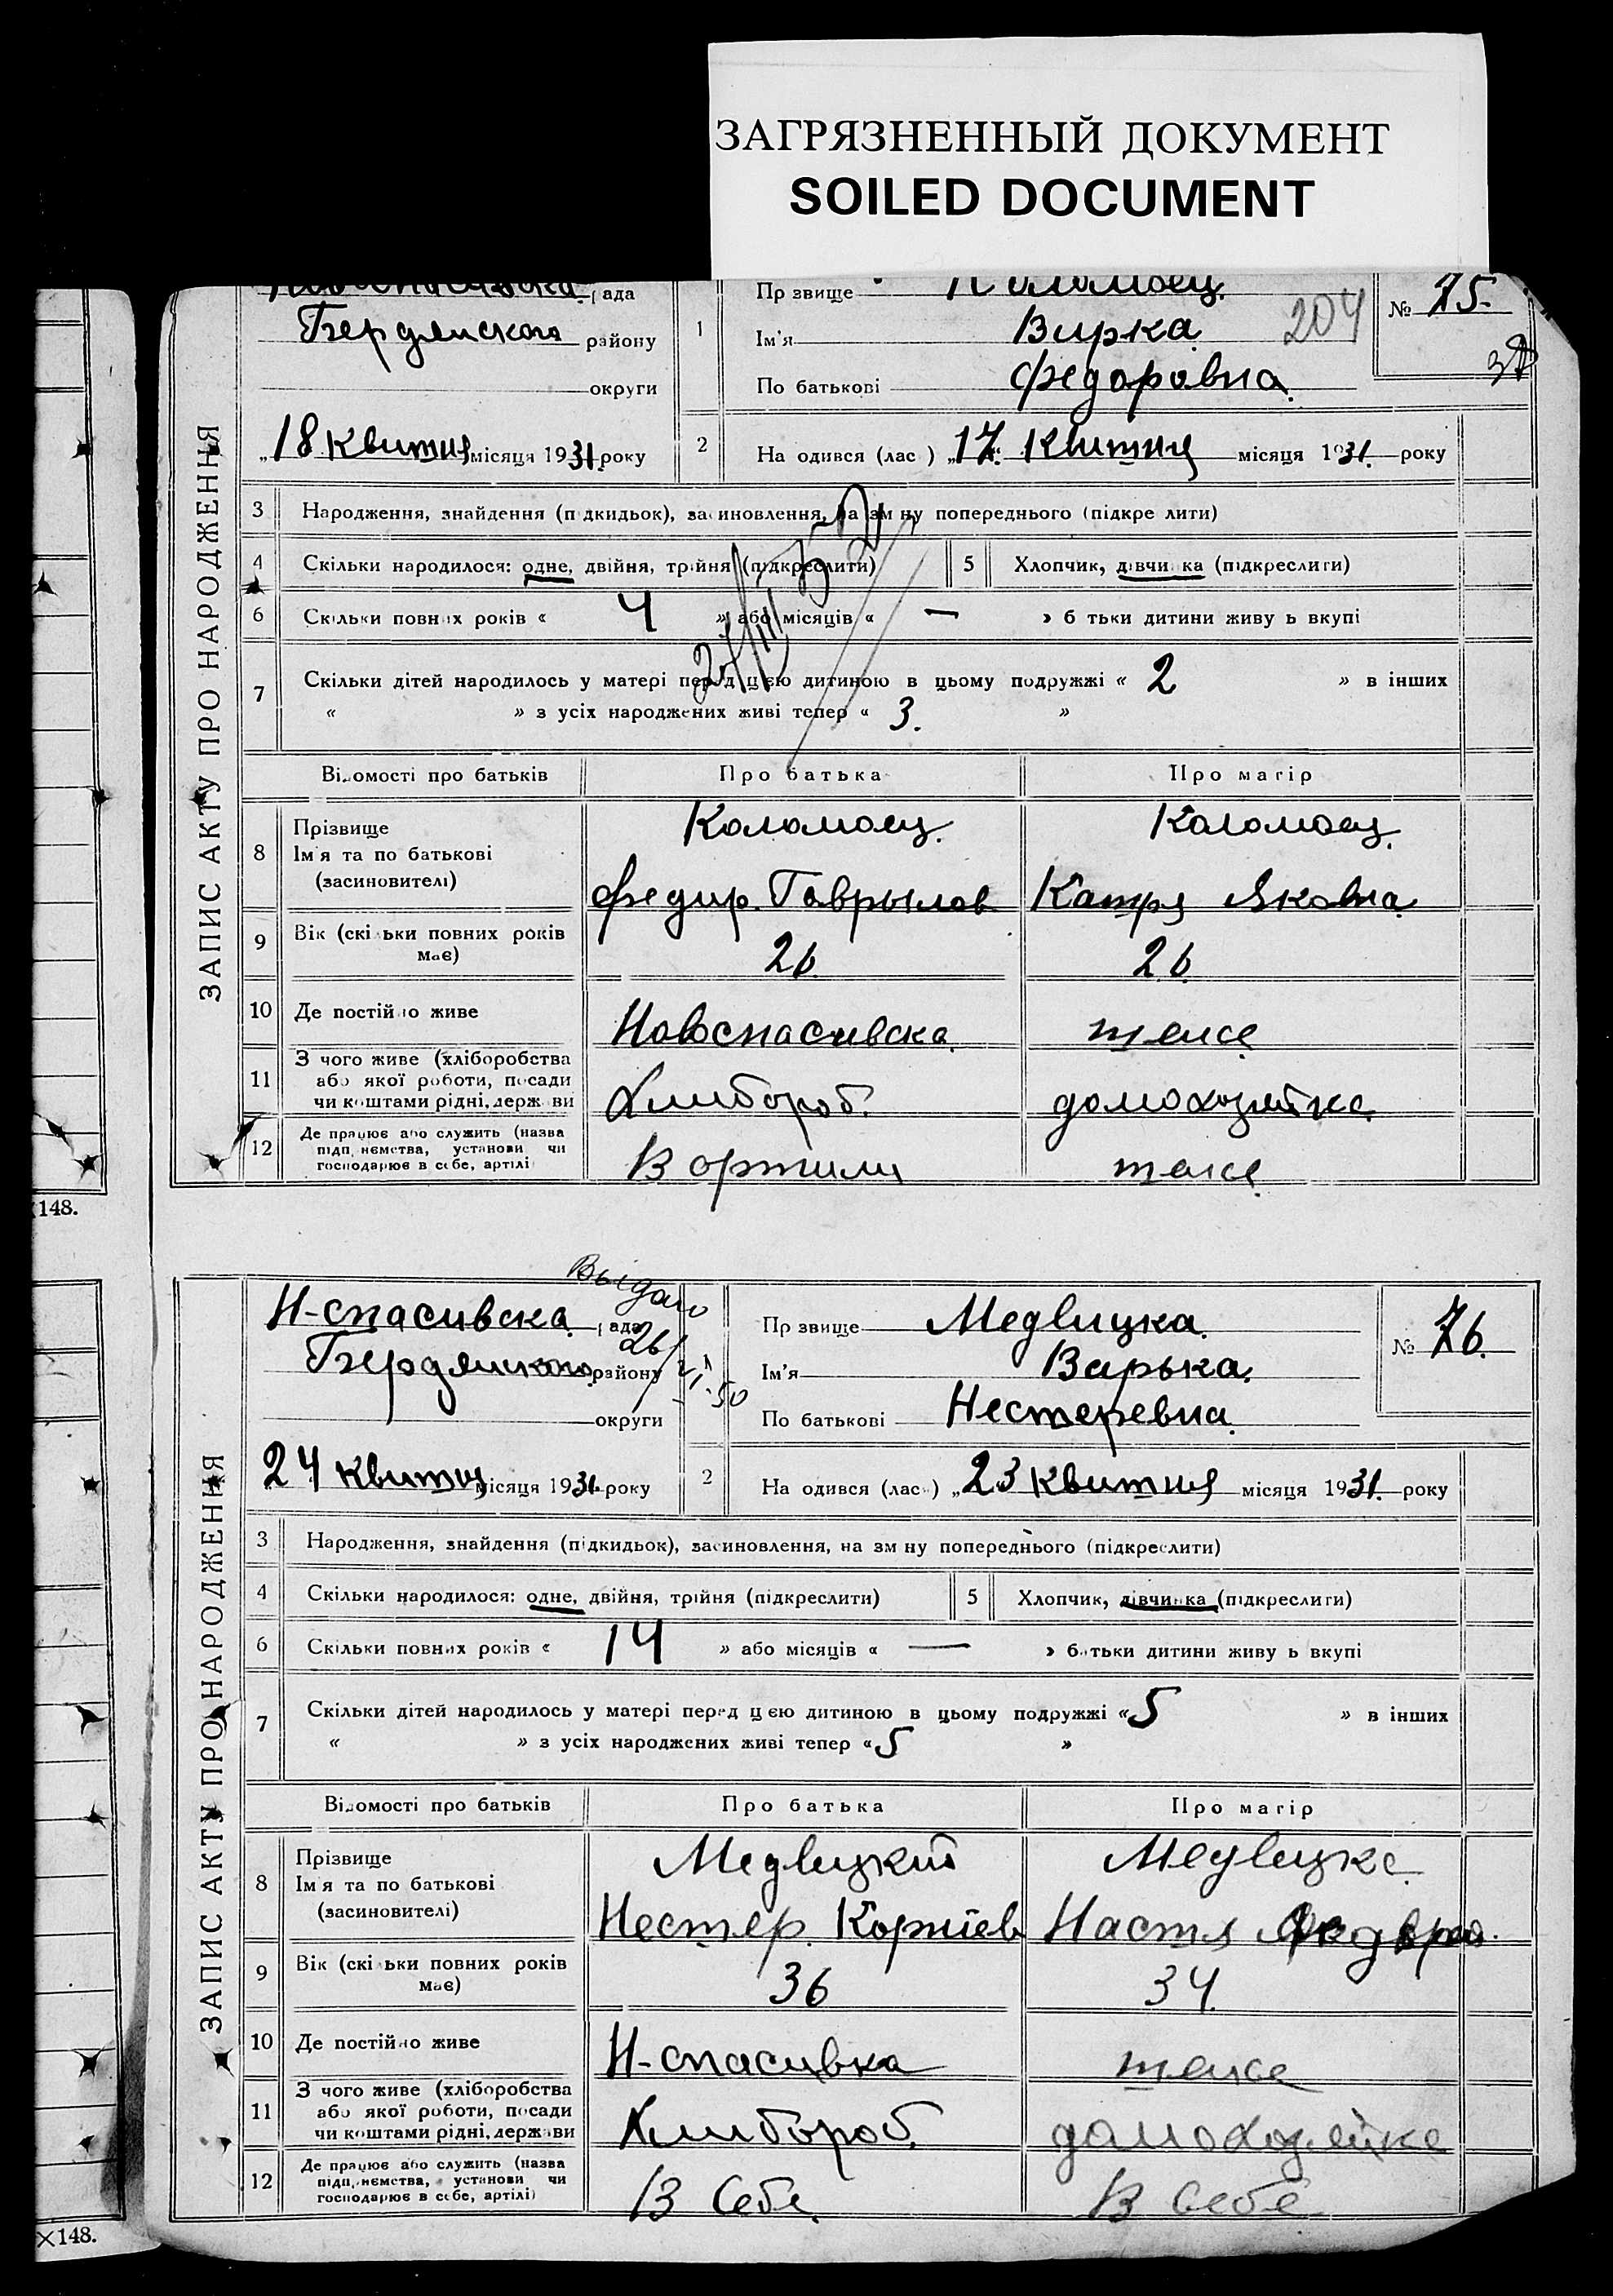 ЗАГРЯЗНЕННЫЙ ДОКУМЕНТ
SOILED DOCUMENT
ЗАПИС АКТУ ПРО НАРОДЖЕННЯ
рада
Бердянского району
округи
„18 Квитня місяця 1931. року
1
Прізвище Коломоец.
Ім'я Вирка
204
По батькові Федоровна.
№ 75.
2
На одився (лас ) „17." Квитня місяця 1931. року
3 Народження, знайдення (підкидьок), засиновлення, на зм ну попереднього (підкре лити)
4 Скільки народилося: одне, двійня, трійня (підкреслити)
5 Хлопчик, дівчинка (підкреслити)
6 Скільки повних років « 4 » або місяців « — » б тьки дитини живу ь вкупі
7 Скільки дітей народилось у матері перед цією дитиною в цьому подружжі « 2 » в інших
« » з усіх народжених живі тепер « 3. »
Відомості про батьків Про батька Про матір
8 Прізвище
Ім'я та по батькові
(засновителі)
Коломоец. Коломоец.
Федир. Гаврылов Катря Яковна
9 Вік (скі ьки повних років має)
26 26
10 Де постійно живе
Новоспасивска. теже
11 З чого живе (хліборобства
або якої роботи, посади
чи коштами рідні, держави
Хлибороб. домохозяйка
12 Де працює або служить (назва
підп нємства, установи чи
господарює в себе, артілі)
В ортили теже
148.
ЗАПИС АКТУ ПРО НАРОДЖЕННЯ
Выдано
26/VI-50
Н-спасивска рада
Бердянского району
округи
24 Квитня місяця 1931. року
Прізвище Медвицка.
Ім'я Варька.
По батькові Нестеревна.
№ 76.
2
На одився (лась) „23 Квитня місяця 1931. року
3 Народження, знайдення (підкидьок), засиновлення, на зм ну попереднього (підкреслити)
4 Скільки народилося: одне, двійня, трійня (підкреслити)
5 Хлопчик, дівчинка (підкреслити)
6 Скільки повних років « 14 » або місяців « — » батьки дитини живу ь вкупі
7 Скільки дітей народилось у матері перед цією дитиною в цьому подружжі «5 » в інших
« » з усіх народжених живі тепер «5 »
Відомості про батьків Про батька Про матір
8 Прізвище
Ім'я та по батькові
(засиновителі)
Медвицкий Медвицка
Нестер. Корнїев Настя
9 Вік (скі ьки повних років має)
36 34.
10 Де постійно живе
Н-спасивка теже
11 З чого живе (хліборобства
або якої роботи, посади
чи коштами рідні, держави
Хлибороб. домохозяйка
12 Де працює або служить (назва
підп нємства, установи чи
господарює в себе, артілі)
В Себе. В Себе
×148.